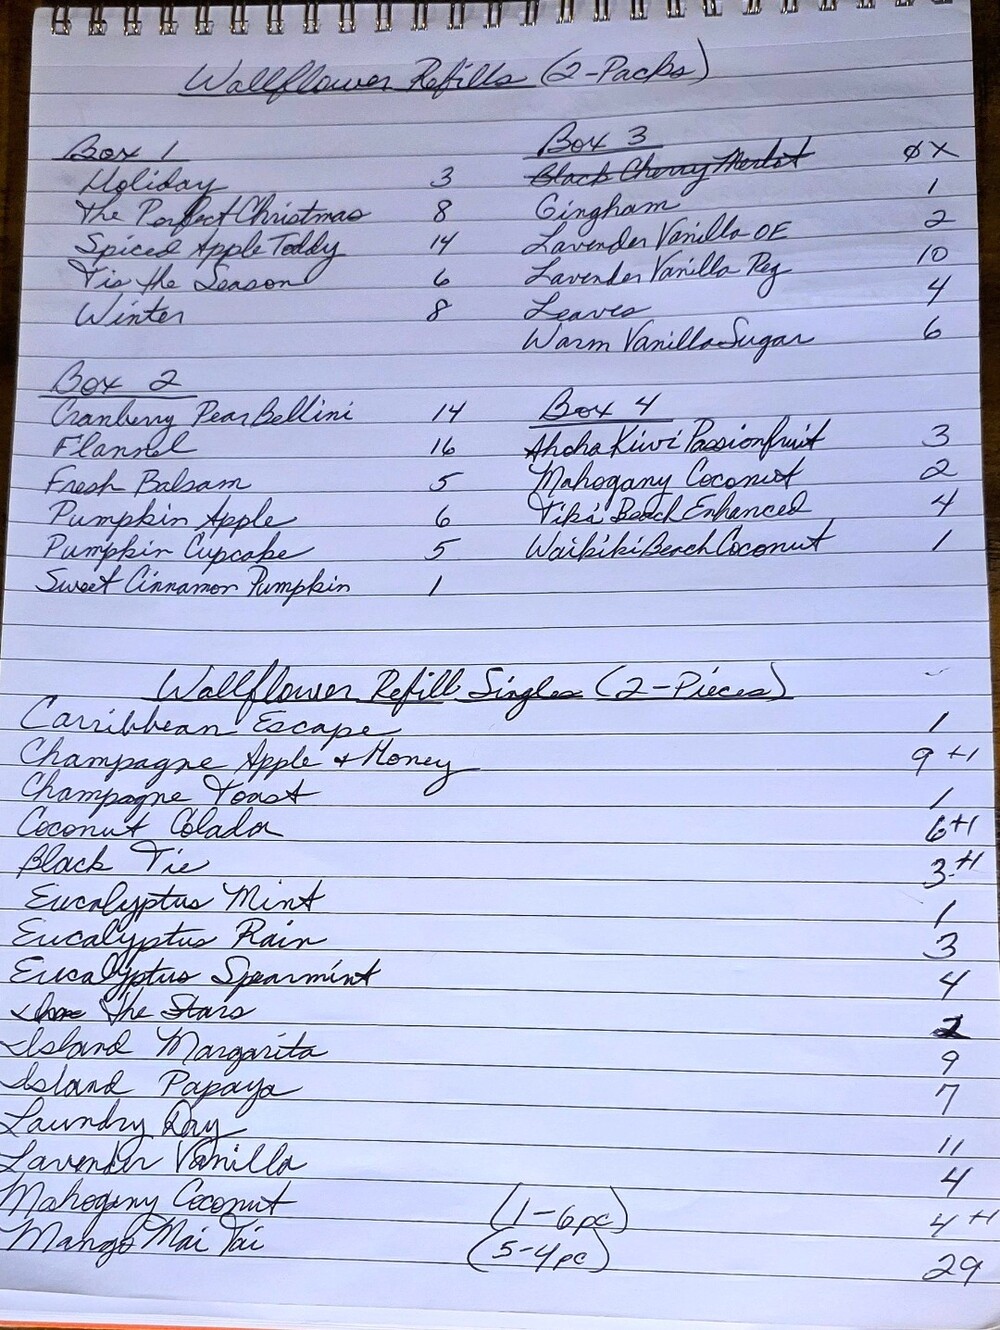 Wallflower Refills (2-Packs)
Box 1
Holiday 3
The Perfect Christmas 8
Spiced Apple Toddy 14
Tis the Season 6
Winter 8
Box 2
Cranberry Pear Bellini 14
Flannel 16
Fresh Balsam 5
Pumpkin Apple 6
Pumpkin Cupcake 5
Sweet Cinnamon Pumpkin 1
Box 3
Black Cherry Merlot X
Gingham 1
Lavender Vanilla OE 2
Lavender Vanilla Reg 10
Leaves 4
Warm Vanilla Sugar 6
Box 4
Ahoha Kiwi Passionfruit 3
Mahogany Coconut 2
Tiki Beach Enhanced 4
Waikiki Beach Coconut 1
Wallflower Refill Singles (2-Pieces)
Carribbean Escape 1
Champagne Apple + Honey 9 +1
Champagne Toast 1
Coconut Colada 6+1
Black Tie 3+1
Eucalyptus Mint 1
Eucalyptus Rain 3
Eucalyptus Spearmint 4
The Stars 2
Island Margarita 9
Island Papaya 7
Laundry Day 11
Lavender Vanilla 4
Mahogany Coconut (1-6pc) 4 +1
Mango Mai Tai (5-4pc) 29